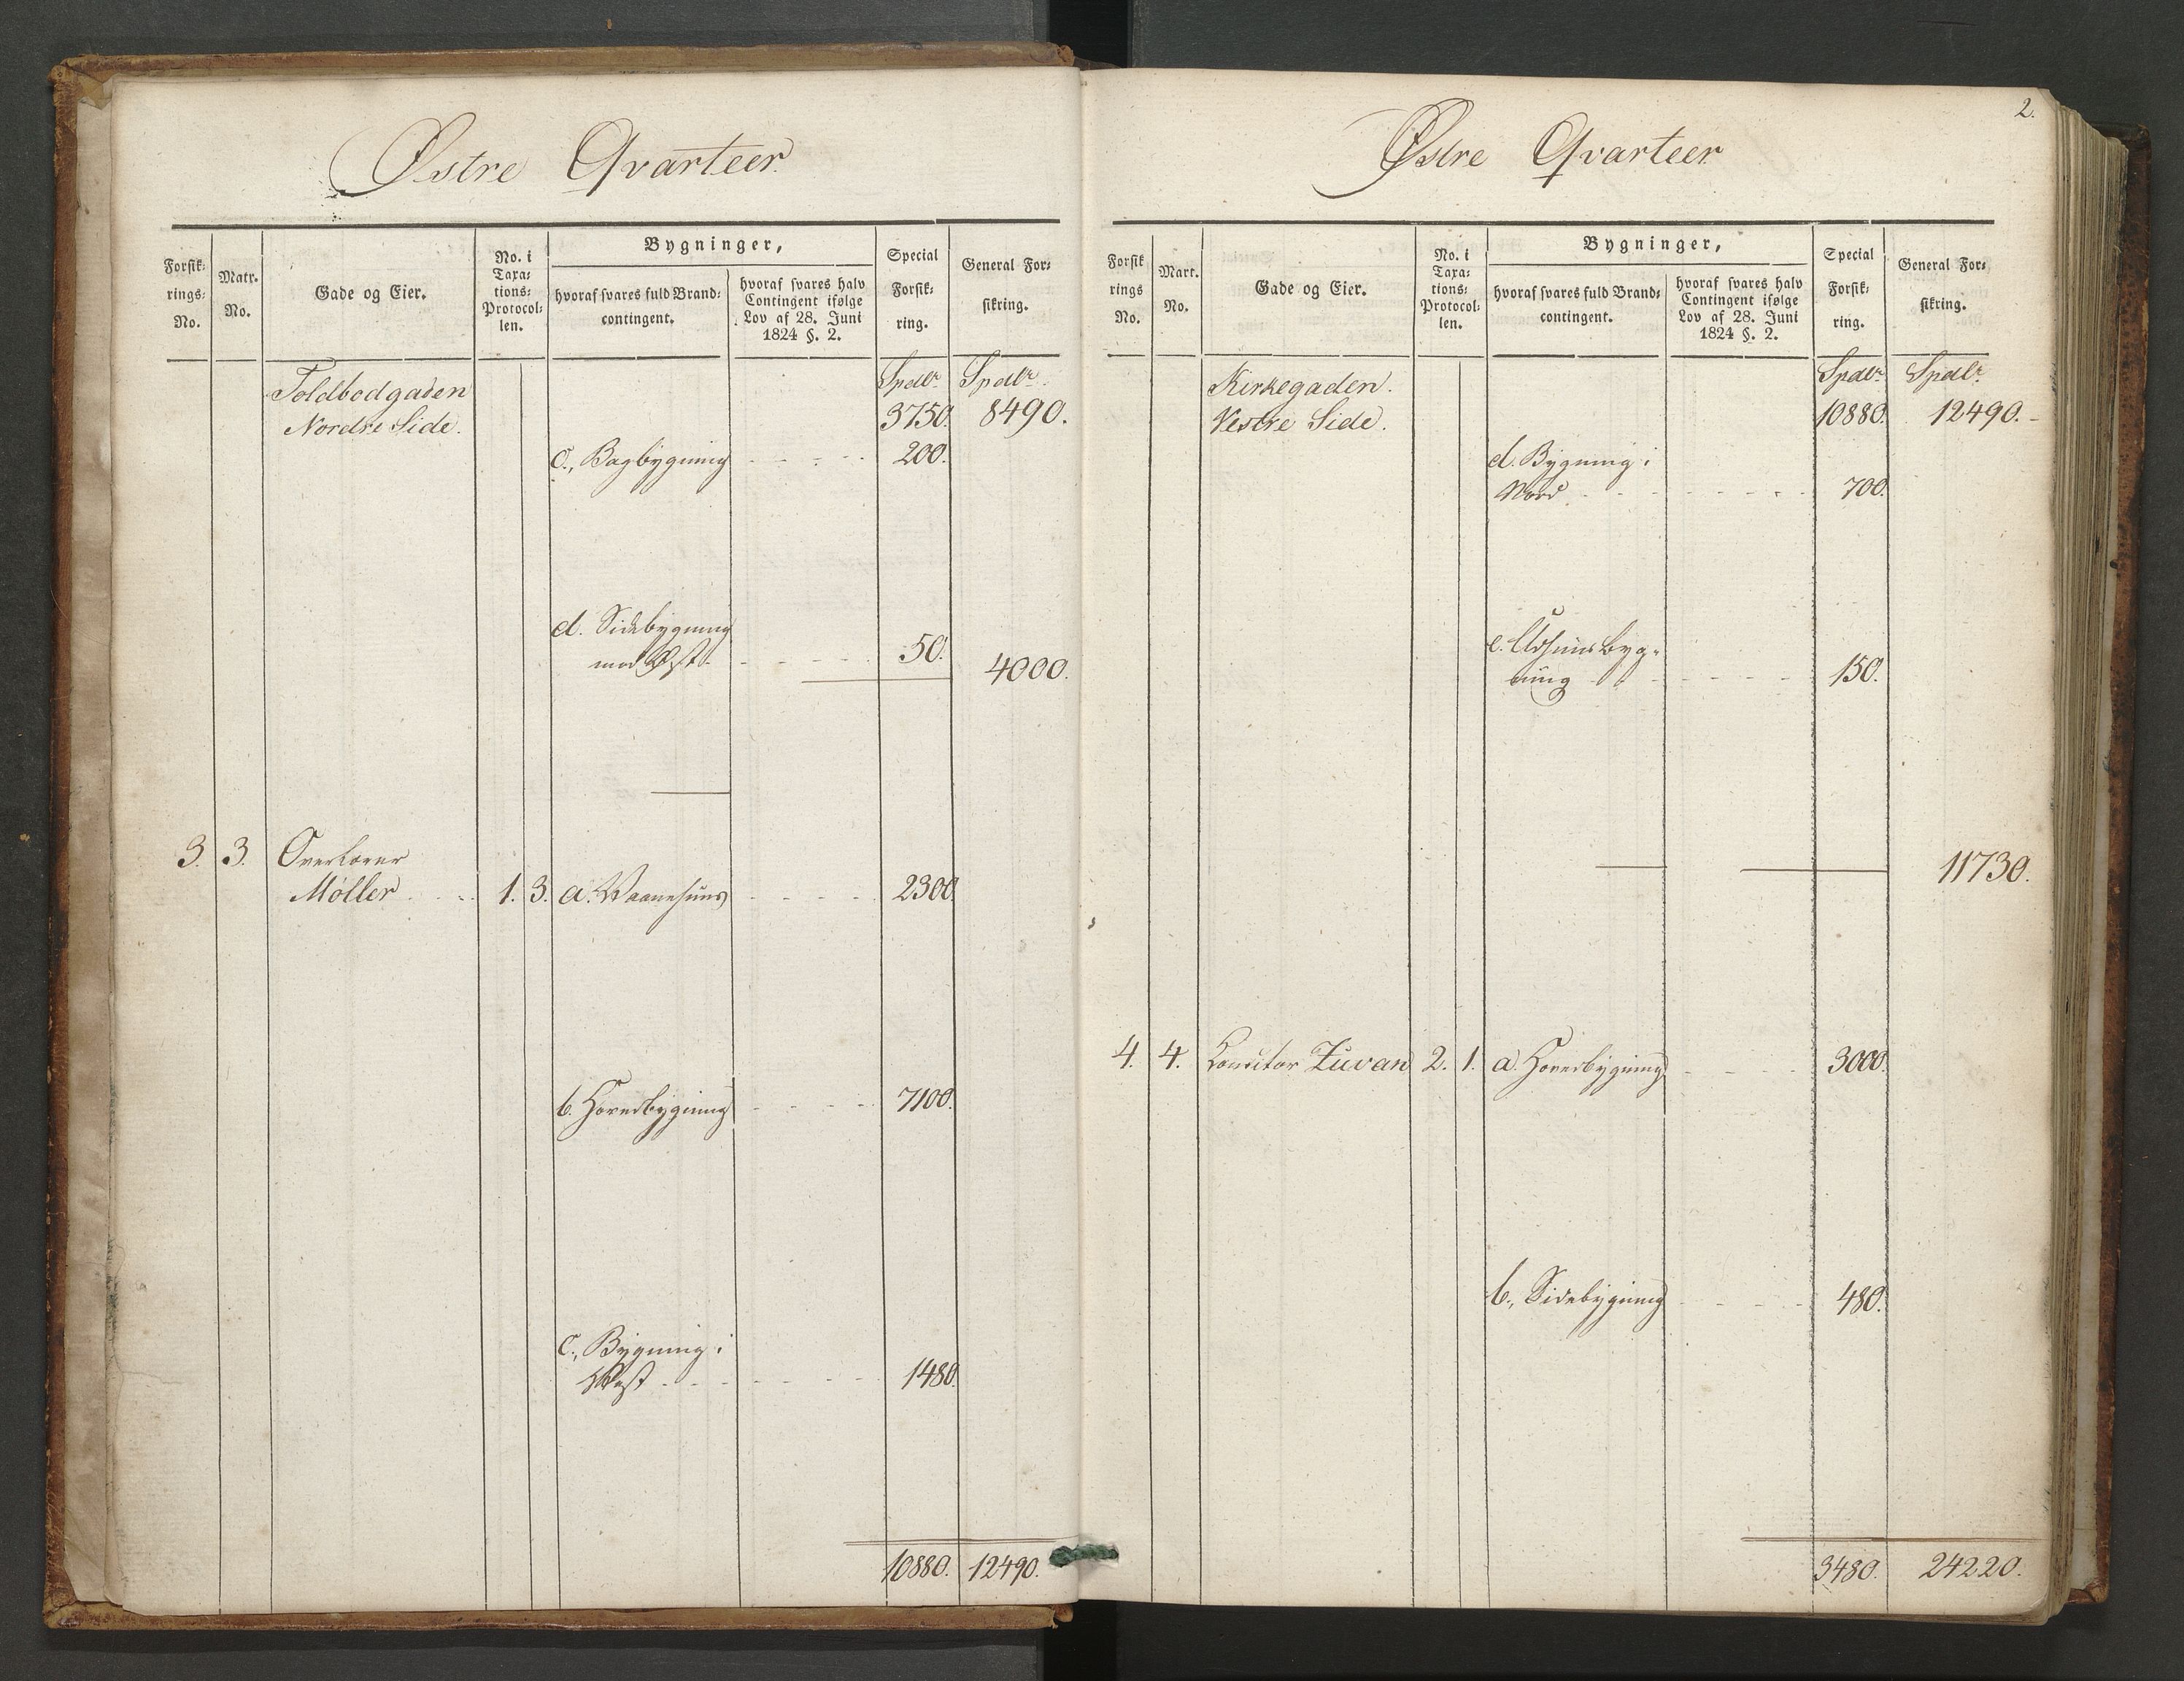 Østre Qvarteer.
Forsik-
rings-
No.
Matr.
No.
Gade og Eier.
No. i
Taxa-
tions-
Protocol-
len.
Bygninger,
hvoraf svares fuld Brand-
contingent.
hvoraf svares halv
Contingent ifølge
Lov af 28. Juni
1824 §. 2.
Special
Forsik-
ring.
General For-
sikring.
Toldbodgaden Spdlr. Spdlr.
Nordre Side. 3750. 8490.
c., Bagbygning 200.
d. Sidebygning
mod Øst 50.
4000.
3. 3. Overlærer
Møller 1. 3. a. Vaanehuus 2300.
b. Hovedbygning 7100.
c., Bygning i
Vest 1480.
10880. 12490.
2.
Østre Qvarteer
Forsik
rings
No.
Mart.
No.
Gade og Eier.
No. i
Taxa-
tions-
Protocol-
len.
Bygninger,
hvoraf svares fuld Brand-
contingent.
hvoraf svares halv
Contingent ifølge
Lov af 28. Juni
1824 §. 2.
Special
Forsik-
ring.
General For-
sikring.
Kirkegaden. Spdlr. Spdlr.
Vestre Side. 10880. 12490.
d. Bygning i
Nord 700.
e. Udhuusbyg-
ning 150.
11730.
4. 4. Conditor Zuvan 2. 1. a. Hovedbygning 3000.
b., Sidebygning 480.
3480. 24220.